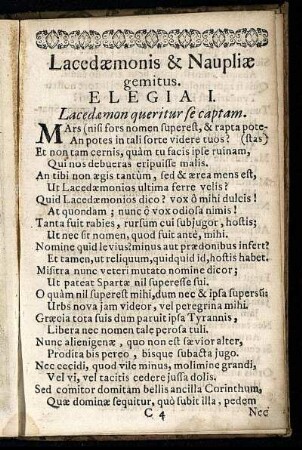 Lacedæmonis & Naupliæ
gemitus.
ELEGIA I.
Lacedæmon queritur se captam.
MArs (nisi fors nomen superest, & rapta pote-
An potes in tali sorte videre tuos? (stas)
Et non tam cernis, quàm tu facis ipse ruinam,
Qui nos debueras eripuisse malis.
An tibi non ægis tantùm, sed & ærea mens est,
Ut Lacedæmonios ultima ferre velis?
Quid Lacedæmonios dico? vox ô mihi dulcis!
At quondam; nunc ô vox odiosa nimis!
Tanta fuit rabies, rursùm cui subjugor, hostis;
Ut nec sit nomen, quod fuit antè, mihi.
Nomine quid levius? minus aut prædonibus infert?
Et tamen, ut reliquum, quidquid id, hostis habet.
Misitra nunc veteri mutato nomine dicor;
Ut pateat Spartæ nil superesse sui.
O quàm nil superest mihi, dum nec & ipsa supersū:
Urbs nova jam videor, vel peregrina mihi.
Græcia tota suis dum paruit ipsa Tyrannis,
Libera nec nomen tale perosa tuli.
Nunc alienigenæ, quo non est sævior alter,
Prodita bis pereo, bisque subacta jugo.
Nec cecidi, quod vile minus, molimine grandi,
Vel vi, vel tacitis cedere jussa dolis.
Sed comitor domitam bellis ancilla Corinthum,
Quæ dominæ sequitur, quò subit illa, pedem
C 4 Nec